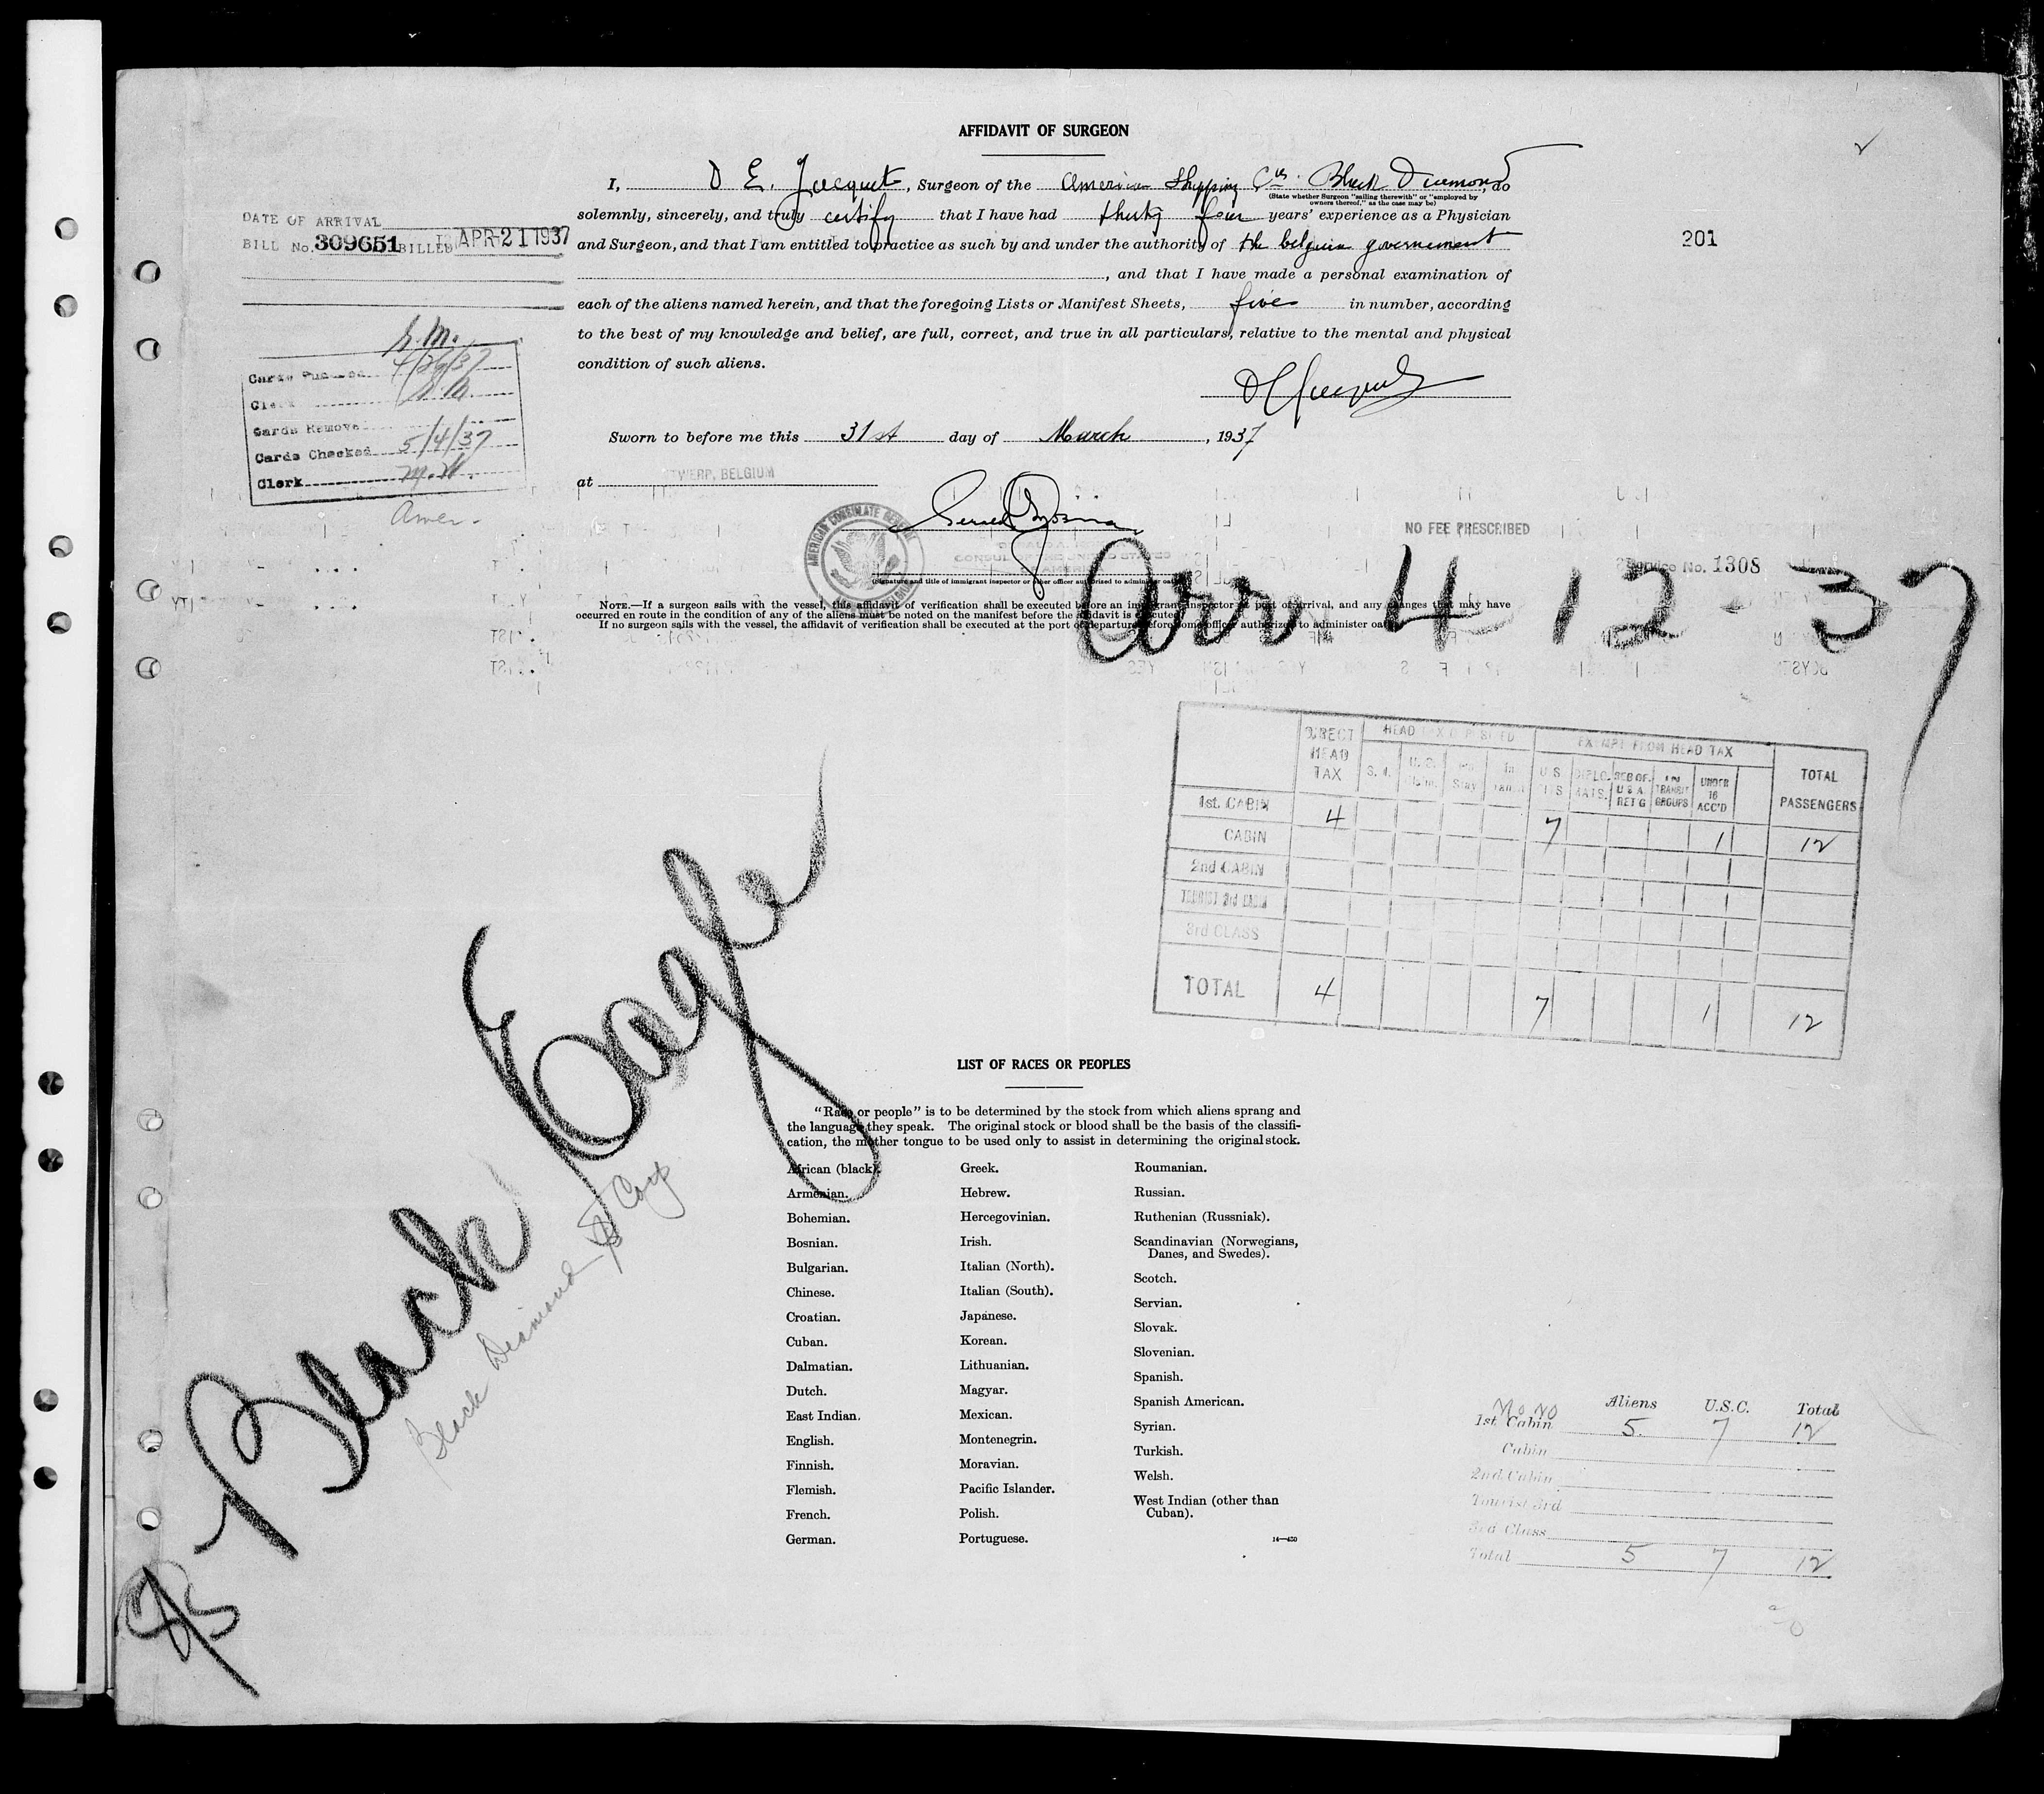 AFFIDAVIT OF SURGEON
I, D E. Jacquet, Surgeon of the American Shipping Black Diamond, do
(State whether Surgeon "sailing therewith" or "employed by
owners thereof," as the case may be)
solemnly, sincerely, and truly certify that I have had thirty four years' experience as a Physician
and Surgeon, and that I am entitled to practice as such by and under the authority of the belgian governement
, and that I have made a personal examination of
each of the aliens named herein, and that the foregoing Lists or Manifest Sheets, five in number, according
to the best of my knowledge and belief, are full, correct, and true in all particulars, relative to the mental and physical
condition of such aliens.
Sworn to before me this 31st day of March, 1937
at TWERP, BELGIUM
DATE OF ARRIVAL
BILL No. 309651 BILLED APR 21 1937
201
4/26/37
Clerk
Cards Remove
Cards Checked 5/4/37
Clerk
Amer.
AMERICAN CONSULATE GENERAL
CONSUL OF THE UNITED STATES
NO FEE PRESCRIBED
Service No. 1308
(Signature and title of immigrant inspector or other officer authorized to administer oaths)
NOTE.—If a surgeon sails with the vessel, this affidavit of verification shall be executed before an immigrant inspector at port of arrival, and any changes that may have
occurred en route in the condition of any of the aliens must be noted on the manifest before the affidavit is executed.
If no surgeon sails with the vessel, the affidavit of verification shall be executed at the port of departure before some officer authorized to administer oaths.
Arr 4 12 37
DIRECT HEAD TAX
HEAD TAX DEPOSITED
EXEMPT FROM HEAD TAX
TOTAL PASSENGERS
UNDER 16 ACC'D
1st. CABIN 4 7 1 12
CABIN
2nd CABIN
TOURIST 3rd CABIN
3rd CLASS
TOTAL 4 7 1 12
SS Black Eagle
Black Diamond SS Corp
LIST OF RACES OR PEOPLES
"Race or people" is to be determined by the stock from which aliens sprang and
the language they speak. The original stock or blood shall be the basis of the classifi-
cation, the mother tongue to be used only to assist in determining the original stock.
African (black).
Armenian.
Bohemian.
Bosnian.
Bulgarian.
Chinese.
Croatian.
Cuban.
Dalmatian.
Dutch.
East Indian.
English.
Finnish.
Flemish.
French.
German.
Greek.
Hebrew.
Hercegovinian.
Irish.
Italian (North).
Italian (South).
Japanese.
Korean.
Lithuanian.
Magyar.
Mexican.
Montenegrin.
Moravian.
Pacific Islander.
Polish.
Portuguese.
Roumanian.
Russian.
Ruthenian (Russniak).
Scandinavian (Norwegians,
Danes, and Swedes).
Scotch.
Servian.
Slovak.
Slovenian.
Spanish.
Spanish American.
Syrian.
Turkish.
Welsh.
West Indian (other than
Cuban).
14—430
Aliens U.S.C. Total
1st. Cabin 5 7 12
Cabin
2nd Cabin
Tourist 3rd
3rd Class
Total 5 7 12